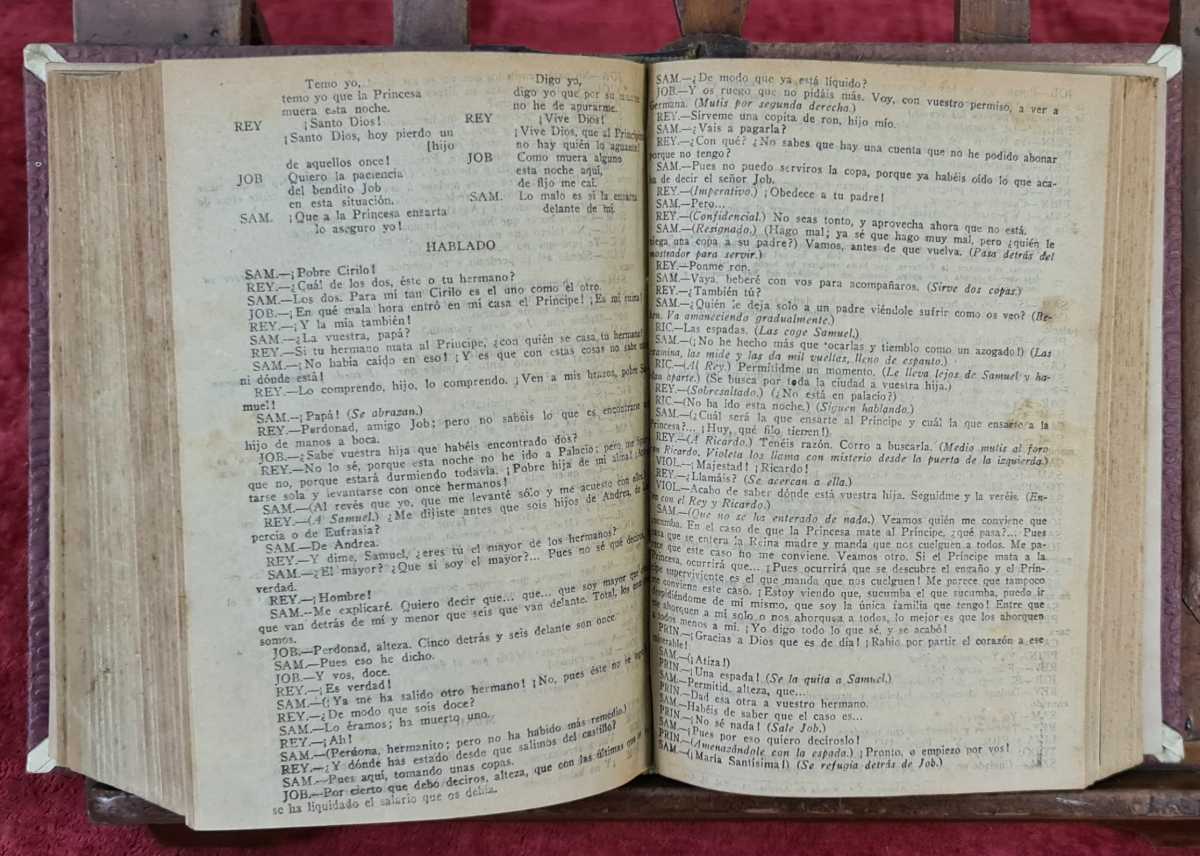 Temo yo,
temo yo que la Princesa
muera esta noche.
REY ¡Santo Dios!
¡Santo Dios, hoy pierdo un
[hijo
de aquellos once!
JOB Quiero la paciencia
del bendito Job
en esta situación.
SAM. ¡Que a la Princesa ensarta
lo aseguro yo!
Digo yo,
digo yo que por su muerte
no he de apurarme.
REY ¡Vive Dios!
¡Vive Dios, que al Príncipe
no hay quién lo aguante!
JOB Como muera alguno
esta noche aquí,
de fijo me caí.
SAM. Lo malo es si la ensarta
delante de mí.
HABLADO
SAM.—¡Pobre Cirilo!
REY.—¿Cuál de los dos, éste o tu hermano?
SAM.—Los dos. Para mí tan Cirilo es el uno como el otro.
JOB.—¡En qué mala hora entró en mi casa el Príncipe! ¡Es mi ruina!
REY.—¡Y la mía también!
SAM.—¿La vuestra, papá?
REY.—Si tu hermano mata al Príncipe, ¿con quién se casa tu hermana?
SAM.—¡No había caído en eso! ¡Y es que con estas cosas no sabe uno
ni dónde está!
REY.—Lo comprendo, hijo, lo comprendo. ¡Ven a mis brazos, pobre Sa-
muel!
SAM.—¡Papá! (Se abrazan.)
REY.—Perdonad, amigo Job; pero no sabéis lo que es encontrarse un
hijo de manos a boca.
JOB.—¿Sabe vuestra hija que habéis encontrado dos?
REY.—No lo sé, porque esta noche no he ido a Palacio; pero me figuro
que no, porque estará durmiendo todavía. ¡Pobre hija de mi alma!
tarse sola y levantarse con once hermanos!
SAM.—(Al revés que yo, que me levanté sólo y me acuesto con ellos.)
REY.—(A Samuel.) ¿Me dijiste antes que sois hijos de Andrea, de
percia o de Eufrasia?
SAM.—De Andrea.
REY.—Y dime, Samuel, ¿eres tú el mayor de los hermanos?
SAM.—¿El mayor? ¿Que si soy el mayor?... Pues no sé qué deciros,
verdad.
REY.—¡Hombre!
SAM.—Me explicaré. Quiero decir que... que... que soy mayor que
que van detrás de mí y menor que seis que van delante. Total, los
somos.
JOB.—Perdonad, alteza. Cinco detrás y seis delante son once.
SAM.—Pues eso he dicho.
JOB.—Y vos, doce.
REY.—¡Es verdad!
SAM.—(¡Ya me ha salido otro hermano! ¡No, pues éste no le
REY.—¿De modo que sois doce?
SAM.—Lo éramos; ha muerto uno.
REY.—¡Ah!
SAM.—(Perdona, hermanito; pero no ha habido más remedio.)
REY.—¿Y dónde has estado desde que salimos del castillo?
SAM.—Pues aquí, tomando unas copas.
JOB.—Por cierto que debó deciros, alteza, que con las últimas que
se ha liquidado el salario que os debía.
SAM.—¿De modo que ya está líquido?
JOB.—Y os ruego que no pidáis más. Voy, con vuestro permiso, a ver a
Germana. (Mutis por segunda derecha.)
REY.—Sírveme una copita de ron, hijo mío.
SAM.—¿Vais a pagarla?
REY.—¿Con qué? ¿No sabes que hay una cuenta que no he podido abonar
porque no tengo?
SAM.—Pues no puedo serviros la copa, porque ya habéis oído lo que aca-
ba de decir el señor Job.
REY.—(Imperativo.) ¡Obedece a tu padre!
SAM.—Pero...
REY.—(Confidencial.) No seas tonto, y aprovecha ahora que no está.
SAM.—(Resignado.) (Hago mal; ya sé que hago muy mal, pero ¿quién le
niega una copa a su padre?) Vamos, antes de que vuelva. (Pasa detrás del
mostrador para servir.)
REY.—Ponme ron.
SAM.—Vaya, beberé con vos para acompañaros. (Sirve dos copas.)
REY.—¿También tú?
SAM.—¿Quién le deja solo a un padre viéndole sufrir como os veo? (Be-
ben. Va amaneciendo gradualmente.)
RIC.—Las espadas. (Las coge Samuel.)
SAM.—(¡No he hecho más que tocarlas y tiemblo como un azogado!) (Las
examina, las mide y las da mil vueltas, lleno de espanto.)
RIC.—(Al Rey.) Permitidme un momento. (Le lleva lejos de Samuel y ha-
blan aparte.) (Se busca por toda la ciudad a vuestra hija.)
REY.—(Sobresaltado.) (¿No está en palacio?)
RIC.—(No ha ido esta noche.) (Siguen hablando.)
SAM.—(¿Cuál será la que ensarte al Príncipe y cuál la que ensarte a la
Princesa?... ¡Huy, qué filo tienen!).
REY.—(A Ricardo.) Tenéis razón. Corro a buscarla. (Medio mutis al foro
con Ricardo. Violeta los llama con misterio desde la puerta de la izquierda.)
VIOL.—¡Majestad! ¡Ricardo!
REY.—¿Llamáis? (Se acercan a ella.)
VIOL.—Acabo de saber dónde está vuestra hija. Seguidme y la veréis. (En-
tra con el Rey y Ricardo.)
SAM.—(Que no se ha enterado de nada.) Veamos quién me conviene que
sucumba. En el caso de que la Princesa mate al Príncipe, ¿qué pasa?... Pues
pasa que se entera la Reina madre y manda que nos cuelguen a todos. Me pa-
rece que este caso no me conviene. Veamos otro. Si el Príncipe mata a la
Princesa, ocurrirá que... ¡Pues ocurrirá que se descubre el engaño y el Prín-
cipe superviviente es el que manda que nos cuelguen! Me parece que tampoco
me conviene este caso. ¡Estoy viendo que, sucumba el que sucumba, puedo ir
despidiéndome de mí mismo, que soy la única familia que tengo! Entre que
me ahorquen a mí solo o nos ahorquen a todos, lo mejor es que los ahorquen
a todos menos a mí. ¡Yo digo todo lo que sé, y se acabó!
PRIN.—¡Gracias a Dios que es de día! ¡Rabio por partir el corazón a ese
miserable!
SAM.—(¡Atiza!)
PRIN.—¡Una espada! (Se la quita a Samuel.)
SAM.—Permitid, alteza, que...
PRIN.—Dad esa otra a vuestro hermano.
SAM.—Habéis de saber que el caso es...
PRIN.—¡No sé nada! (Sale Job.)
SAM.—¡Pues por eso quiero decíroslo!
PRIN.—(Amenazándole con la espada.) ¡Pronto, o empiezo por vos!
SAM.—(¡María Santísima!) (Se refugia detrás de Job.)